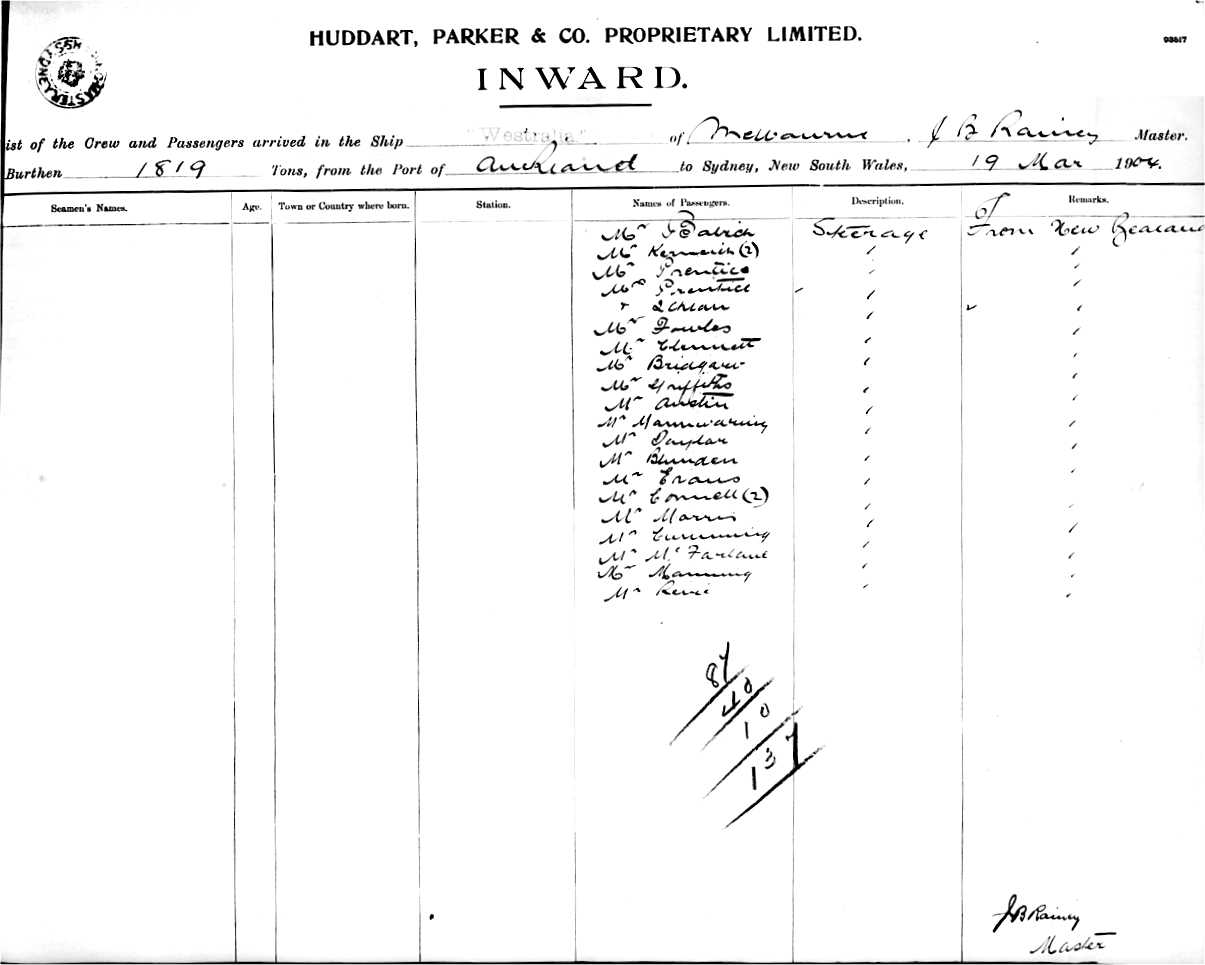 HUDDART, PARKER & CO. PROPRIETARY LIMITED.
93517
INWARD.
ist of the Crew and Passengers arrived in the Ship "Westralia" of Melbourne. J B Rainey Master.
Burthen 1819 Tons, from the Port of Auckland to Sydney, New South Wales, 19 Mar 1904.
Seamen's Names. Age. Town or Country where born. Station. Names of Passengers. Description. Remarks.
Mr Steerage From New Zealand
Mr (2)
Mr Prentice
Mrs Prentice
Mr Fowles
Mr Clennett
Mr
Mr Griffiths
Mr Austin
Mr Mannwaring
Mr Taylor
Mr Blunden
Mr Evans
Mr Connell (2)
Mr Morris
Mr Cumming
Mr McFarlane
Mr Manning
Mr
87
40
10
137
JB Rainey
Master